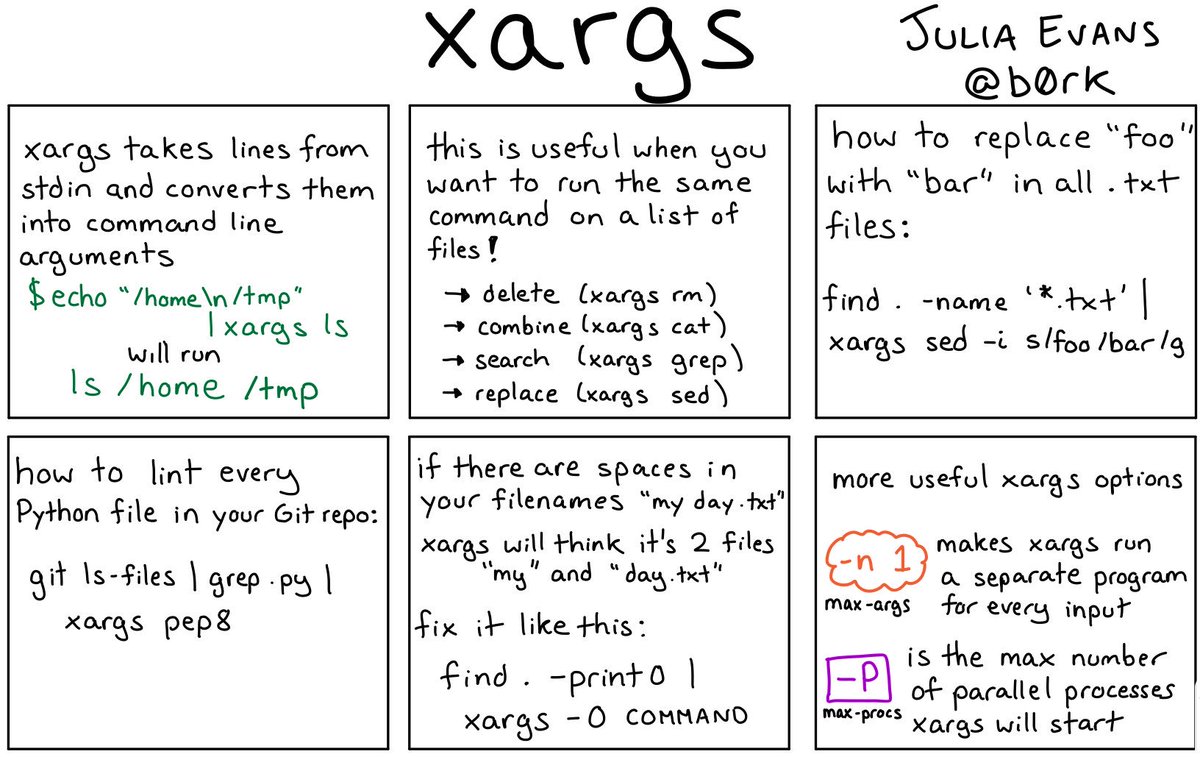 xargs
JULIA EVANS
@b0rk
xargs takes lines from
stdin and converts them
into command line
arguments
$echo "/home\n/tmp"
| xargs ls
will run
ls /home /tmp
this is useful when you
want to run the same
command on a list of
files!
→ delete (xargs rm)
→ combine (xargs cat)
→ search (xargs grep)
→ replace (xargs sed)
how to replace "foo"
with "bar" in all .txt
files:
find . -name '*.txt' |
xargs sed -i s/foo/bar/g
how to lint every
Python file in your Git repo:
git ls-files | grep .py |
xargs pep8
if there are spaces in
your filenames "my day.txt"
xargs will think it's 2 files
"my" and "day.txt"
fix it like this:
find . -print0 |
xargs -0 COMMAND
more useful xargs options
-n 1
max-args
makes xargs run
a separate program
for every input
-P
max-procs
is the max number
of parallel processes
xargs will start